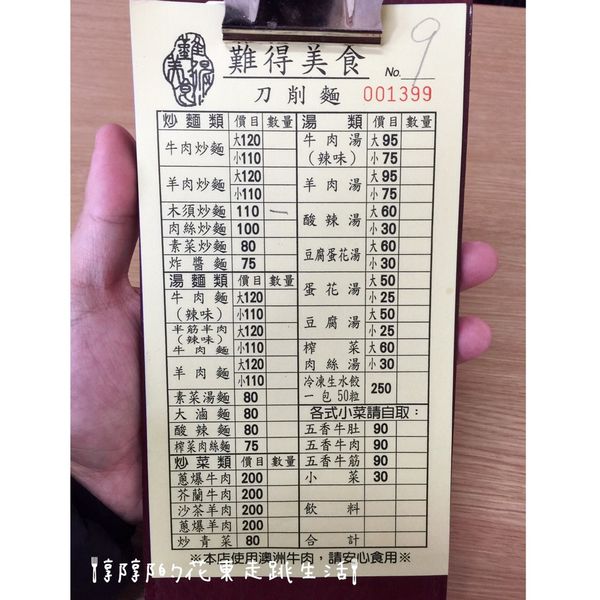 難得美食
難得美食 No. 9
刀削麵 001399
炒麵類 價目 數量
牛肉炒麵 大120
小110
羊肉炒麵 大120
小110
木須炒麵 110 一
肉絲炒麵 100
素菜炒麵 80
炸醬麵 75
湯麵類 價目 數量
牛肉麵 大120
(辣味) 小110
半筋半肉 大120
(辣味)
牛肉麵 小110
羊肉麵 大120
小110
素菜湯麵 80
大滷麵 80
酸辣麵 80
榨菜肉絲麵 75
炒菜類 價目 數量
蔥爆牛肉 200
芥蘭牛肉 200
沙茶羊肉 200
蔥爆羊肉 200
炒青菜 80
湯類 價目 數量
牛肉湯 大95
(辣味) 小75
羊肉湯 大95
小75
酸辣湯 大60
小30
豆腐蛋花湯 大60
小30
蛋花湯 大50
小25
豆腐湯 大50
小25
榨菜 大60
肉絲湯 小30
冷凍生水餃
一包50粒 250
各式小菜請自取:
五香牛肚 90
五香牛肉 90
五香牛筋 90
小菜 30
飲料
合計
※本店使用澳洲牛肉,請安心食用※
惇惇的花東走跳生活